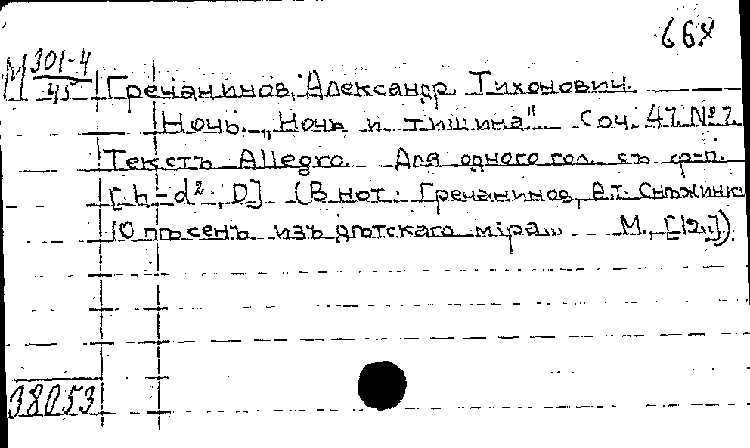 66х
М 301-4
45
Гречанинов, Александр Тихонович.
Ночь. „Ночь и тишина" Соч. 47. № 7.
Текстъ Allegro. Для одного гол. съ ф-п.
[h-d², D] (В нот: Гречанинов, А.Т. Снѣжинки
10 пѣсенъ изъ дѣтскаго міра... М., [19..])
38053